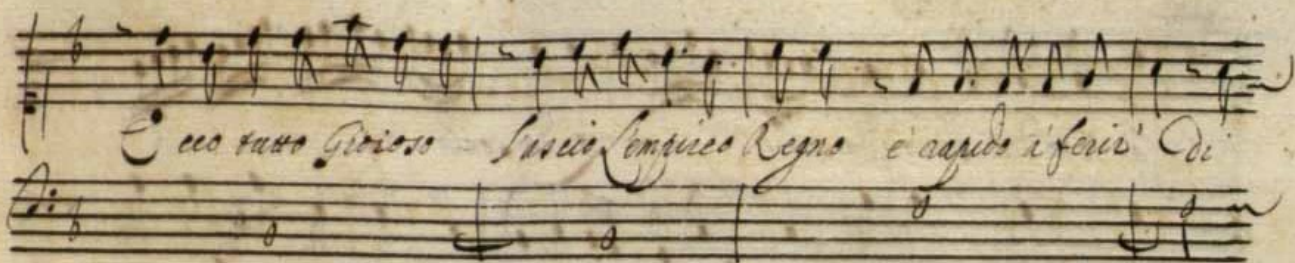 Ecco tutto Gioioso Lascio L'empireo Regno e rapido à ferir' Di